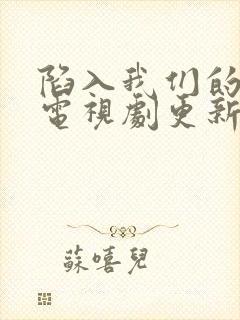 陷入我们的
電視劇更新
蘇嘻兒